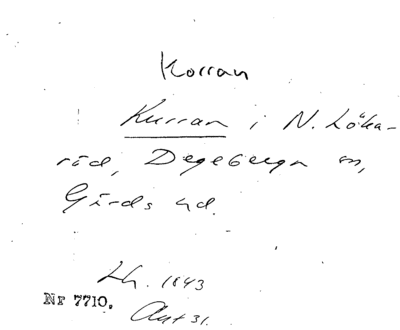 Korran
Kurran i N. Löka-
röd, Degeberga sn,
Gärds hd.
Lh. 1843
Nr 7710.
Akt 31.